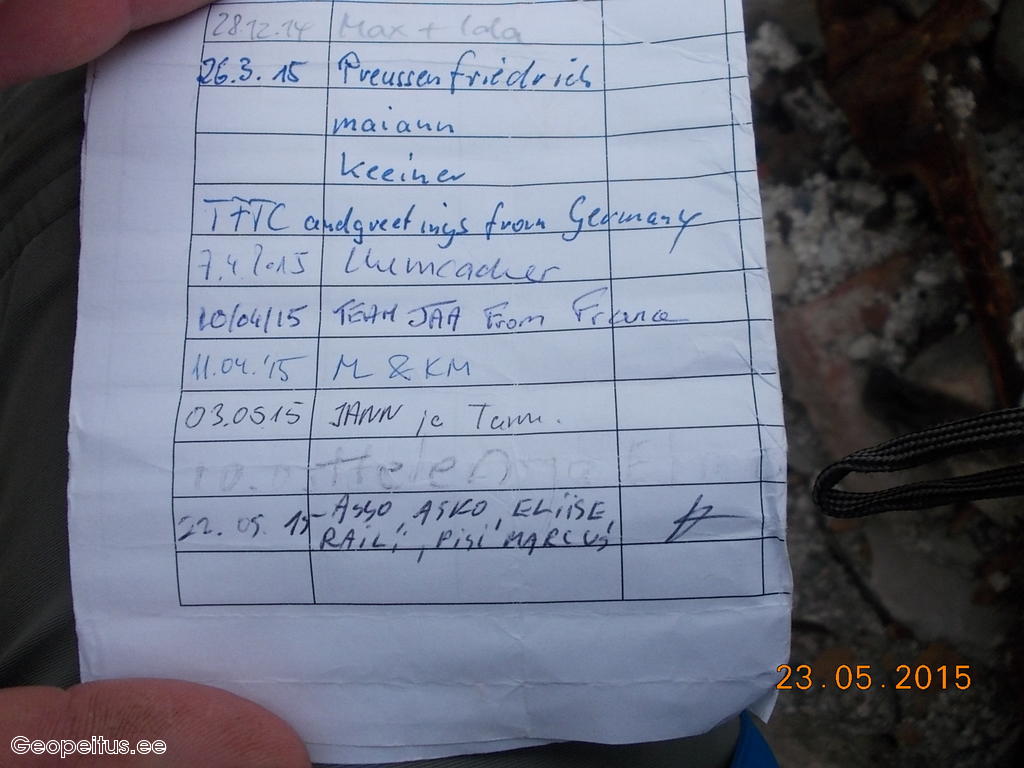 28.12.14 Max + Ida
26.3.15 Preussenfriedrich
maiann
keeiner
TFTC and greetings from Germany
7.4.2015
10/04/15 TEAM JAA From France
11.04.'15 M & KM
03.0515 JANN ja
22.05.15 - ASSO, ASKO, ELIISE,
RAILI, PISI MARCUS
23.05.2015
Geopeitus.ee